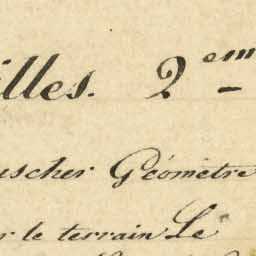 illes. 2em
uscher Géomètre
r le terrain Le